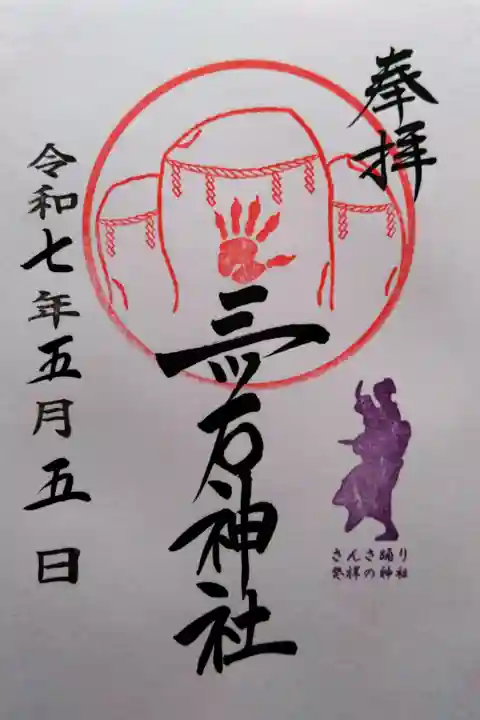 奉拝
三ツ石神社
さんさ踊り
発祥の神社
令和七年五月五日